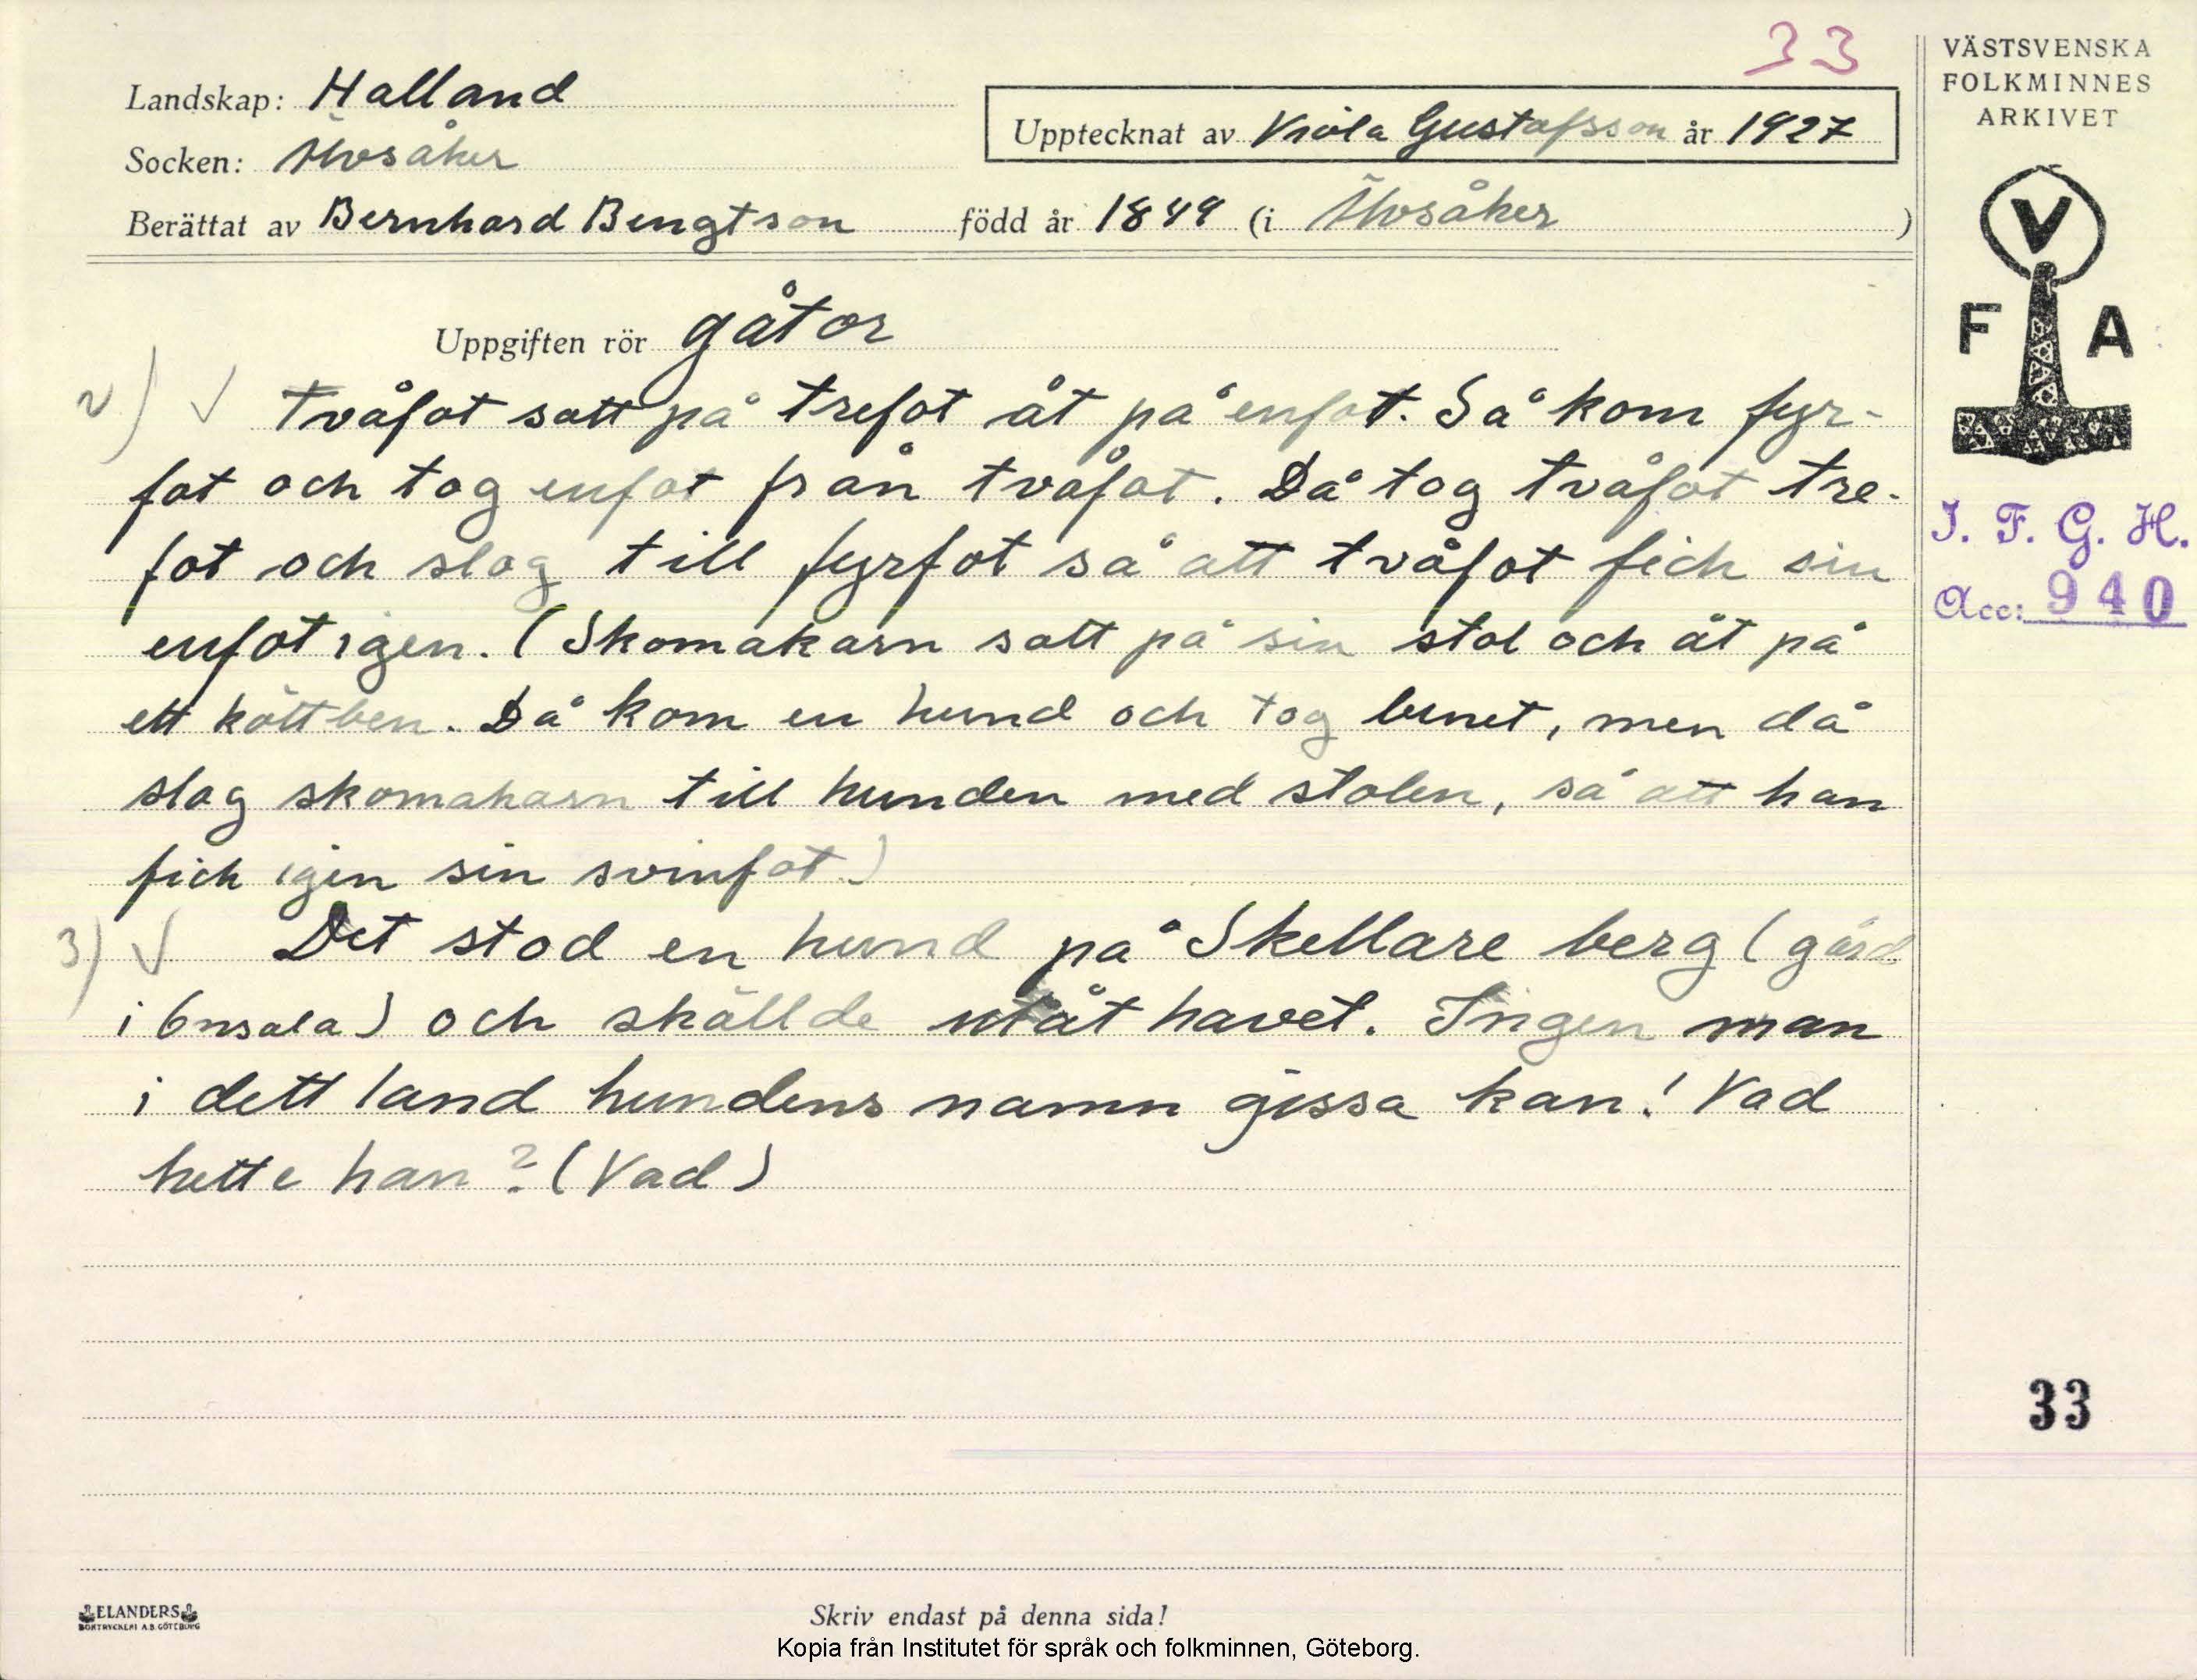 33
VÄSTSVENSKA
FOLKMINNES
ARKIVET
Landskap: Halland
Upptecknat av Viola Gustafsson år 1927
Socken: Älvsåker
Berättat av Bernhard Bengtson född år 1849 (i Älvsåker)
V
F A
Uppgiften rör gåtor
2) √ Tvåfot satt på trefot åt på enfot. Så kom fyr-
fot och tog enfot från tvåfot. Då tog tvåfot tre-
fot och slog till fyrfot så att tvåfot fick sin
enfot igen. (Skomakarn satt på sin stol och åt på
ett köttben. Då kom en hund och tog benet, men då
slog skomakarn till hunden med stolen, så att han
fick igen sin svinfot)
3) √ Det stod en hund på Skellare berg (gård
i Onsala) och skällde utåt havet. Ingen man
i dett land hundens namn gissa kan! Vad
hette han? (Vad)
I. F. G. H.
Acc: 940
33
ELANDERS
BOKTRYCKERI A.B. GÖTEBORG
Skriv endast på denna sida!
Kopia från Institutet för språk och folkminnen, Göteborg.